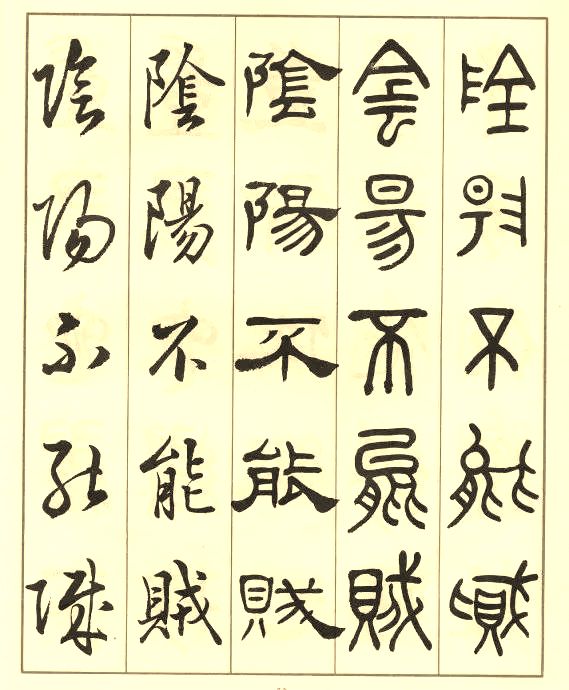 陰陽不能賊
侌昜不能賊
陰陽不能賊
陰陽不能賊
陰陽不能賊